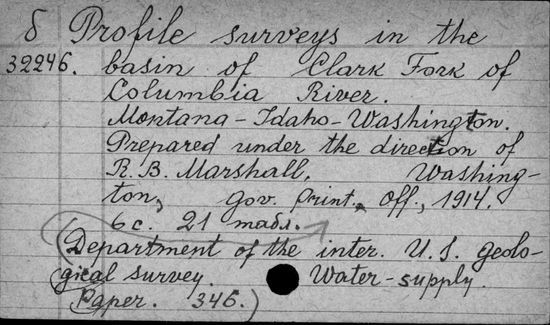 δ Profile surveys in the
32246. basin of Clark Fork of
Columbia River.
Montana-Idaho-Washington.
Prepared under the direction of
R. B. Marshall. Washing-
ton, gov. print. off., 1914.
6 с. 21 табл.
(Department of the inter. U.S. geolo-
gical survey. Water-supply.
Paper. 346.)